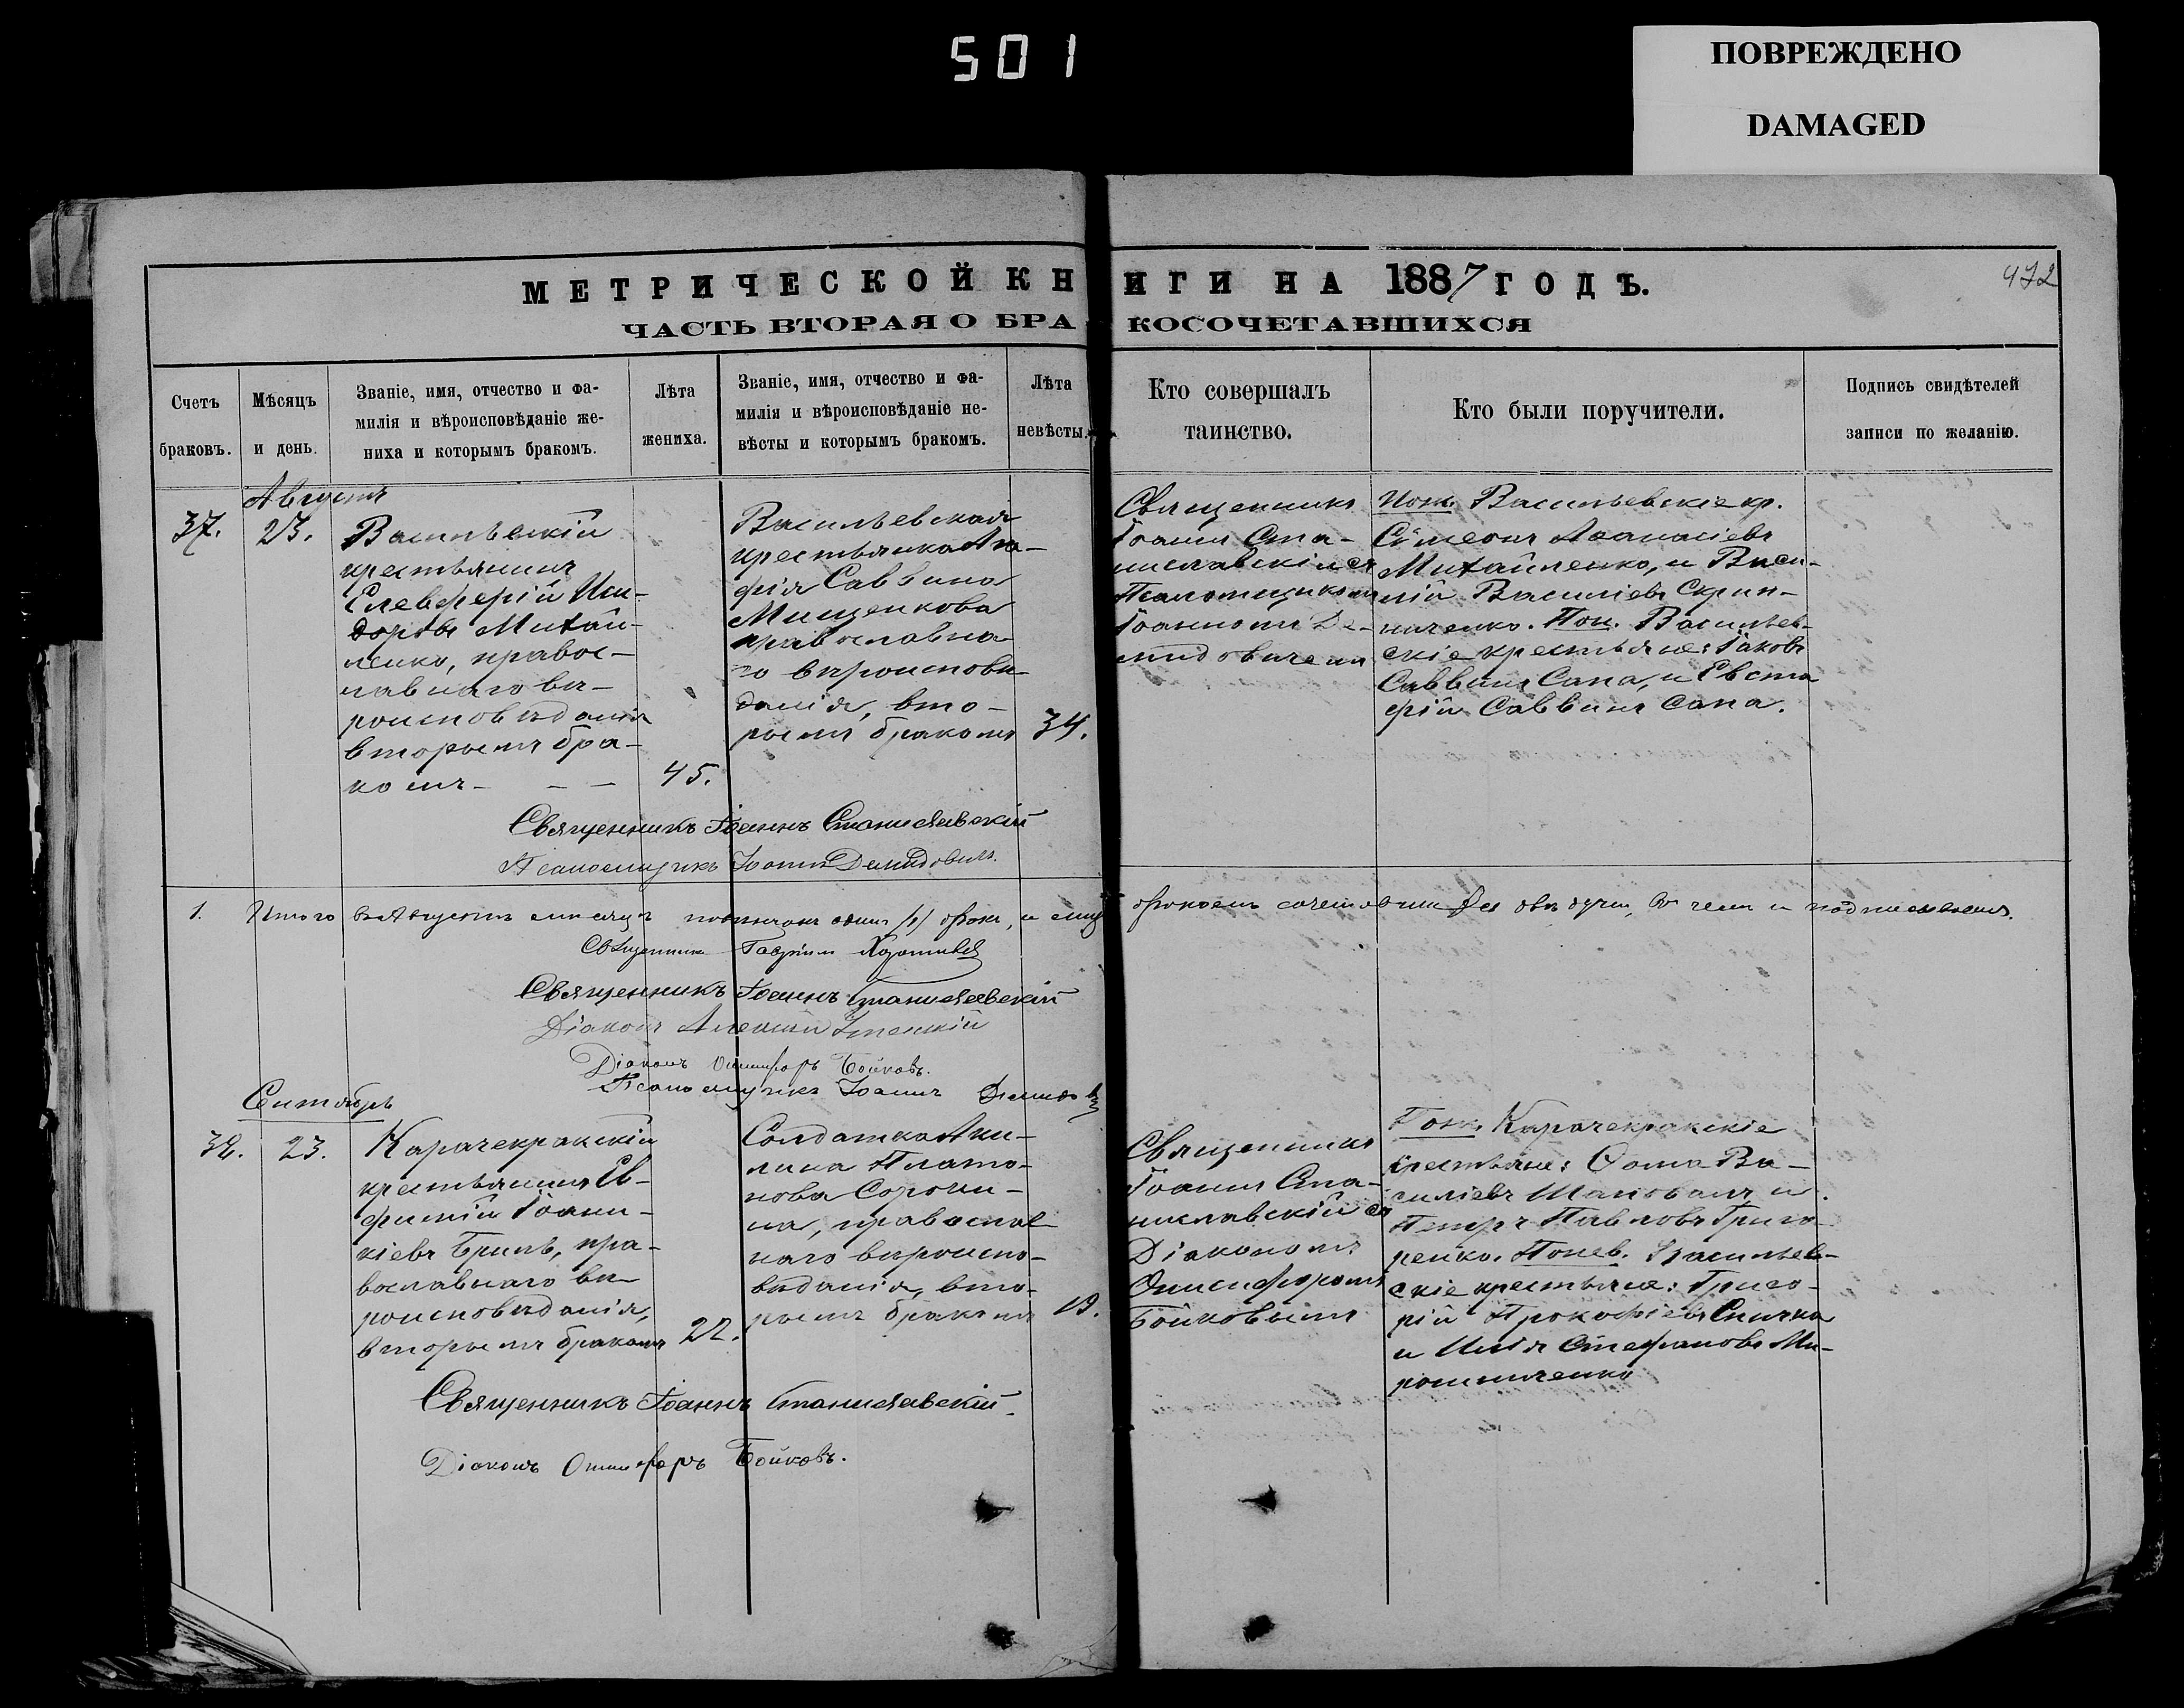 501
ПОВРЕЖДЕНО
DAMAGED
МЕТРИЧЕСКОЙ КНИГИ НА 1887 ГОДЪ.
472
ЧАСТЬ ВТОРАЯ О БРАКОСОЧЕТАВШИХСЯ
Счетъ
браковъ.
Мѣсяцъ
и день.
Званіе, имя, отчество и фа-
милія и вѣроисповѣданіе же-
ниха и которымъ бракомъ.
Лѣта
жениха.
Званіе, имя, отчество и фа-
милія и вѣроисповѣданіе не-
вѣсты и которымъ бракомъ.
Лѣта
невѣсты.
Кто совершалъ
таинство.
Кто были поручители.
Подпись свидѣтелей
записи по желанію.
Августъ
37.
23.
Васильевскій
крестьянинъ
Елевферій Иси-
доровъ Михай-
ленко, правос-
лавнаго вѣ-
роисповѣданія
вторымъ бра-
комъ - - -
45.
Васильевская
крестьянка Ага-
фія Саввина
Мищенкова
православна-
го вѣроисповѣ-
данія, вто-
рымъ бракомъ
34.
Священникъ
Іоаннъ Ста-
ниславскій съ
Псаломщикомъ
Іоанномъ Де-
мидовичемъ
Пож. Васильевскіе кр.
Сѵмеонъ Аѳанасіевъ
Михайленко, и Васи-
лій Василіевъ Скрип-
ниченко. Пон. Васильев-
скіе крестьяне: Іаковъ
Саввинъ Сапа, и Евста
фій Саввинъ Сапа.
Священникъ Іоаннъ Станиславскій
Псаломщикъ Іоаннъ Демидовичъ.
1. Итого въ Августѣ мѣсяцѣ повѣнчанъ одинъ (1) бракъ, и симъ бракомъ сочетавшихся двѣ души, въ чемъ и подписываемся.
Священникъ Гавріилъ
Священникъ Іоаннъ Станиславскій
Діаконъ Алексій
Діаконъ Онисифоръ Бойковъ.
Псаломщикъ Іоаннъ Демидов
Сентябрь
38.
23.
Карачекракскій
крестьянинъ Ев-
фимій Іоанни-
кіевъ Бриль, пра-
вославнаго вѣ-
роисповѣданія,
вторымъ бракомъ
22.
Солдатка Аки-
лина Плато-
нова Сорочи-
на, православ-
наго вѣроиспо-
вѣданія, вто-
рымъ бракомъ
19.
Священникъ
Іоаннъ Ста-
ниславскій съ
Діакономъ
Онисифоромъ
Бойковымъ
Пож. Карачекракскіе
крестьяне: Ѳома Ва-
силіевъ Шаповалъ и
Петръ Павловъ Григо-
ренко. Понев. Васильев-
скіе крестьяне: Григо-
рій Прокофіевъ Спичка
и Илія Стефановъ Ми-
рошниченко
Священникъ Іоаннъ Станиславскій.
Діаконъ Онисифоръ Бойковъ.